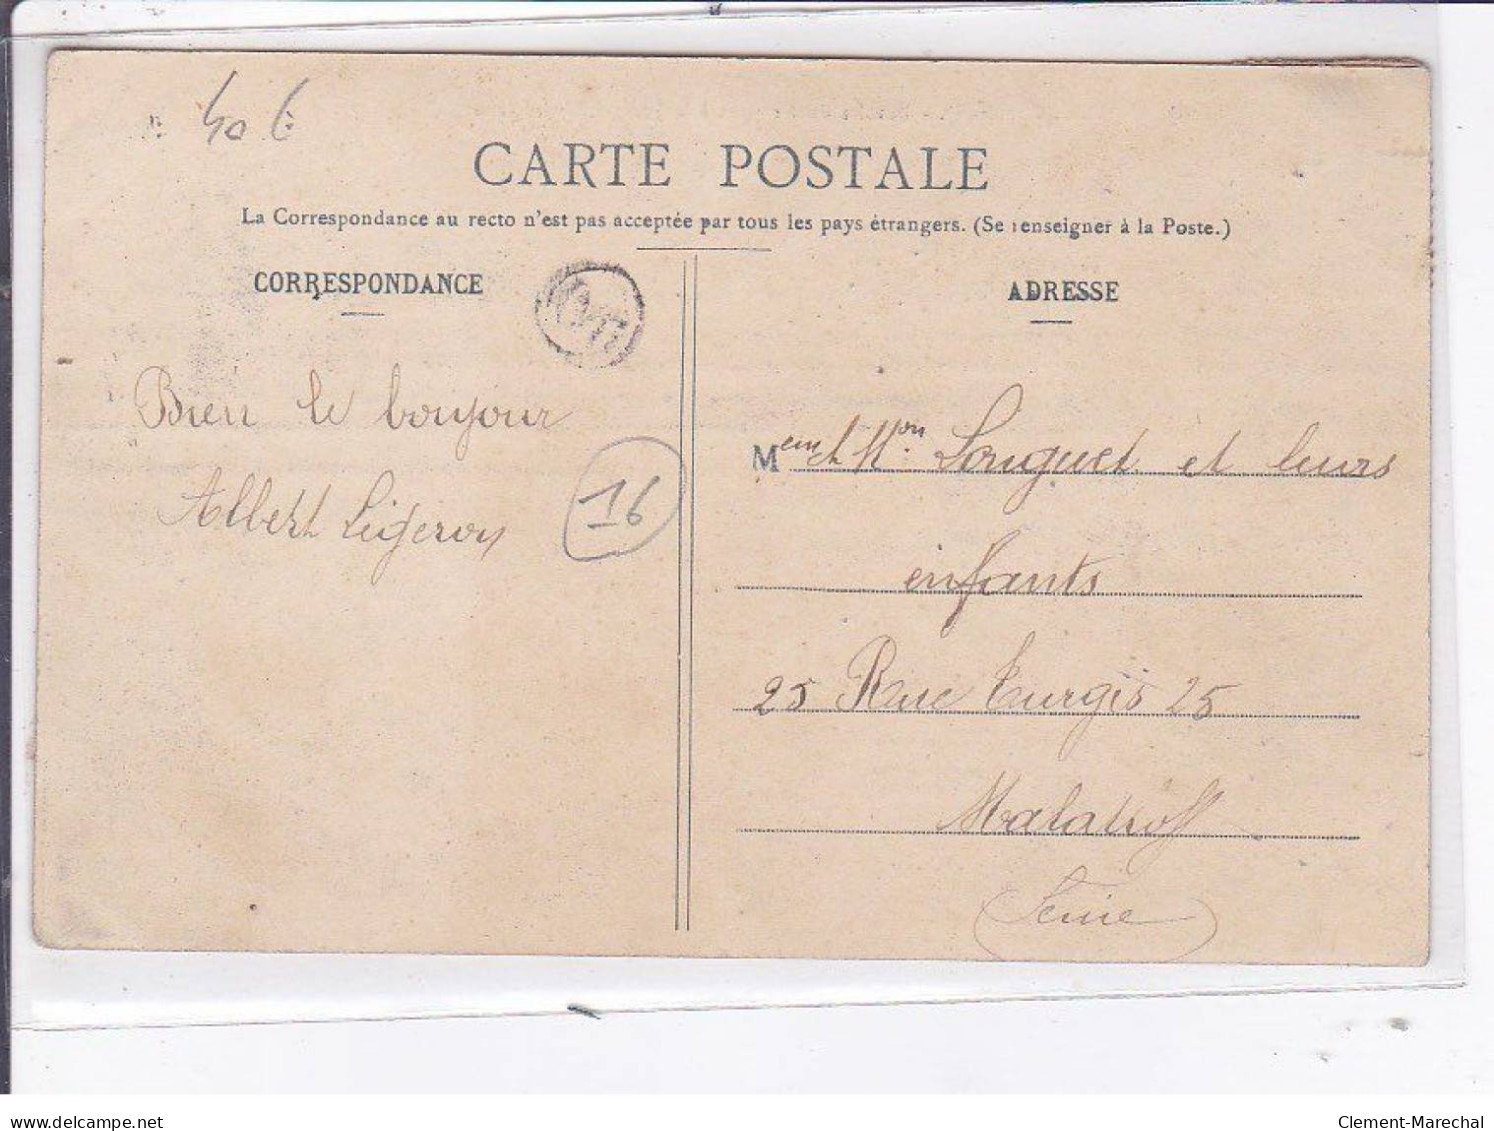 40 €
CARTE POSTALE
La Correspondance au recto n'est pas acceptée par tous les pays étrangers. (Se renseigner à la Poste.)
CORRESPONDANCE
ADRESSE
Bien le bonjour
Albert Ligeron
16
Mem et Mon. Longuet et leurs
enfants
25 Rue Turgis 25
Malakoff
(Seine)
delcampe.net
Clement-Marechal